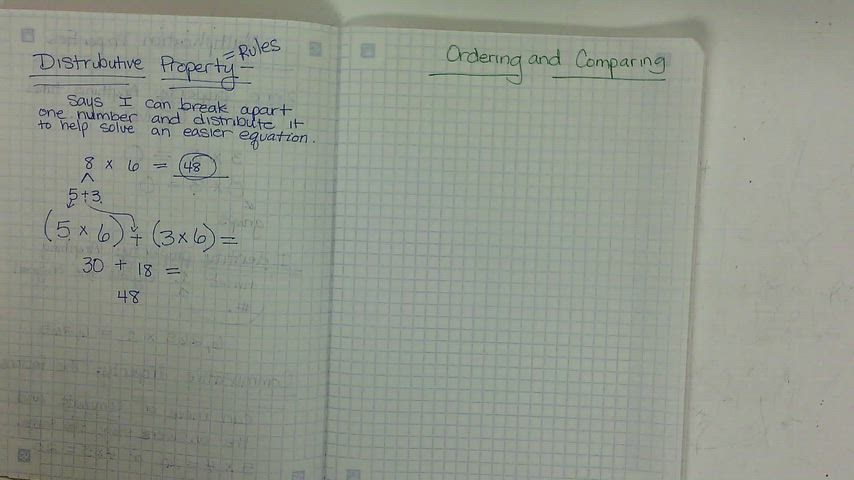 Distributive Property - = Rules
says I can break apart
one number and distribute it
to help solve an easier equation.
8 x 6 = 48
5+3
(5 x 6) + (3 x 6) =
30 + 18 =
48
Ordering and Comparing